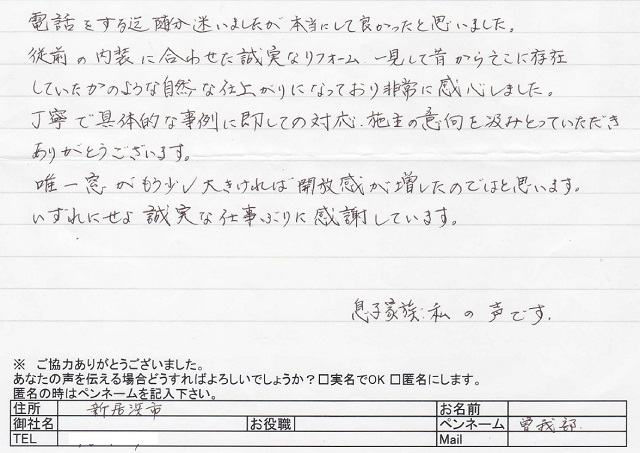 電話をする迄随分迷いましたが本当にして良かったと思いました。
従前の内装に合わせた誠実なリフォーム 一見して昔からそこに存在
していたかのような自然な仕上がりになっており非常に感心しました。
丁寧で具体的な事例に即しての対応、施主の意向を汲みとっていただき
ありがとうございます。
唯一窓がもう少し大きければ開放感が増したのではと思います。
いずれにせよ誠実な仕事ぶりに感謝しています。
息子家族、私の声です。
※ ご協力ありがとうございました。
あなたの声を伝える場合どうすればよろしいでしょうか？□実名でOK □匿名にします。
匿名の時はペンネームを記入下さい。
住所 新居浜市 お名前
御社名 お役職 ペンネーム 曽我部
TEL Mail